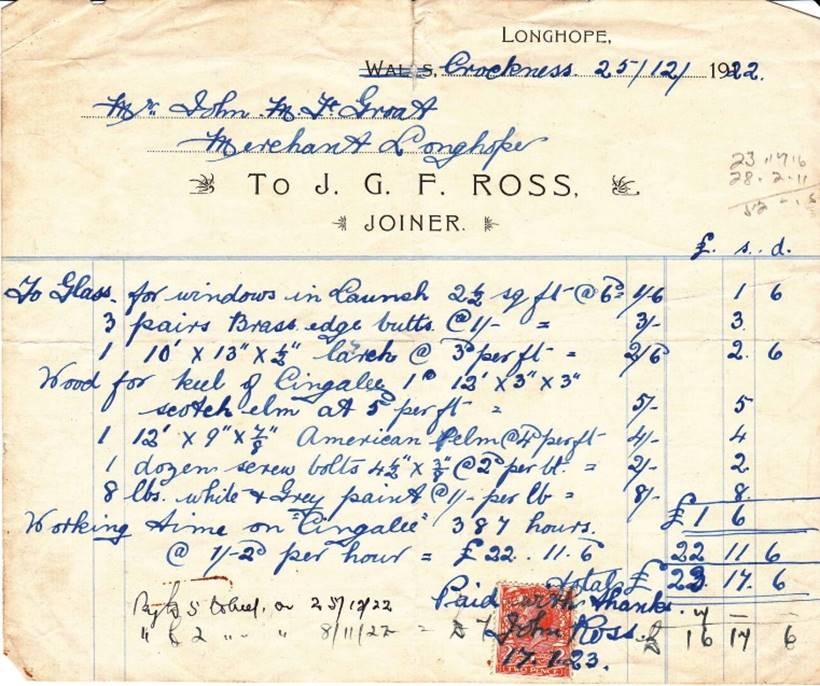 LONGHOPE,
WALLS, Crockness. 25/12/ 1922.
Mr. John M. Ft. Groat
Merchant Longhope
23 17 6
28. 2. 11
TO J. G. F. ROSS,
JOINER.
£. s. d.
To Glass for windows in Launch 2½ sq ft @ 6ᴰ = 1/6 1 6
3 pairs Brass edge butts @ 1/- = 3/- 3.
1 10' X 13" X ½" larch @ 3ᴰ per ft = 2/6 2. 6
Wood for keel of Cingalee 1ᴾ 12' X 3" X 3"
scotch elm at 5ᴰ per ft = 5/- 5
1 12' X 9" X ⅞" American elm @ 4ᴰ per ft - 4/- 4
1 dozen screw bolts 4½" X ⅜" @ 2ᴰ per bt. = 2/- 2.
8 lbs. white & Grey paint @ 1/- per lb = 8/- 8.
£ 1 6
Working time on "Cingalee" 387 hours.
@ 1/-2ᴰ per hour = £22. 11. 6 22 11 6
total £ 23 17. 6
Paid with thanks.
25/12/22
" " " 8/11/22 = £ 16 17 6
John Ross.
17.1.23.
TWO PENCE